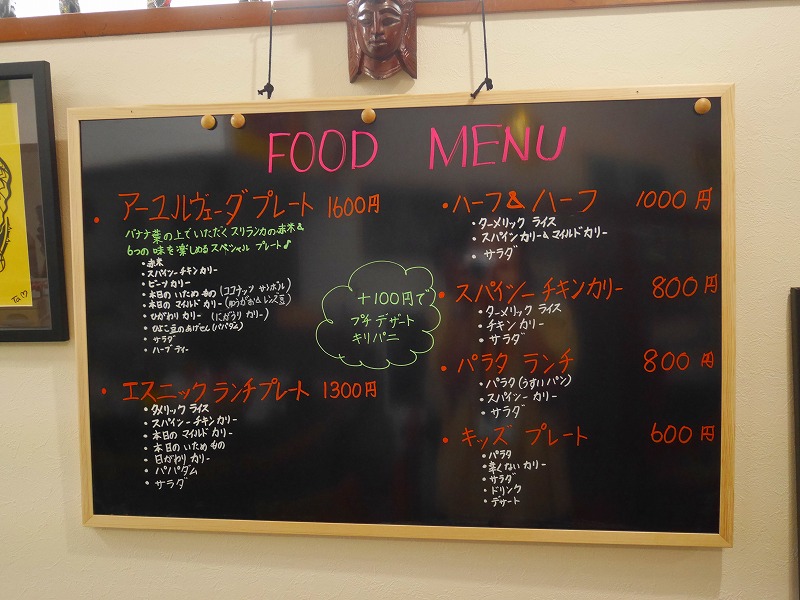 FOOD MENU
・アーユルヴェーダ プレート 1600円
バナナ葉の上でいただく スリランカの赤米&
6つの味を楽しめるスペシャル プレート♪
・赤米
・スパイシーチキンカリー
・ビーツカリー
・本日のいためもの (ココナッツ サンボール)
・本日の マイルド カリー (ゆうがお&レンズ豆)
・ひがわり カリー (にがうり カリー)
・ひよこ豆のあげせん (パパダム)
・サラダ
・ハーブティー
・エスニック ランチプレート 1300円
・タメリック ライス
・スパイシーチキンカリー
・本日の マイルド カリー
・本日の いためもの
・日がわり カリー
・パパダム
・サラダ
+100円で
プチ デザート
キリパニ
・ハーフ&ハーフ 1000円
・ターメリック ライス
・スパイシンカリー&マイルドカリー
・サラダ
・スパイシーチキンカリー 800円
・ターメリック ライス
・チキン カリー
・サラダ
・パラタ ランチ 800円
・パラタ (うすいパン)
・スパイシー カリー
・サラダ
・キッズ プレート 600円
・パラタ
・辛くない カリー
・サラダ
・ドリンク
・デザート